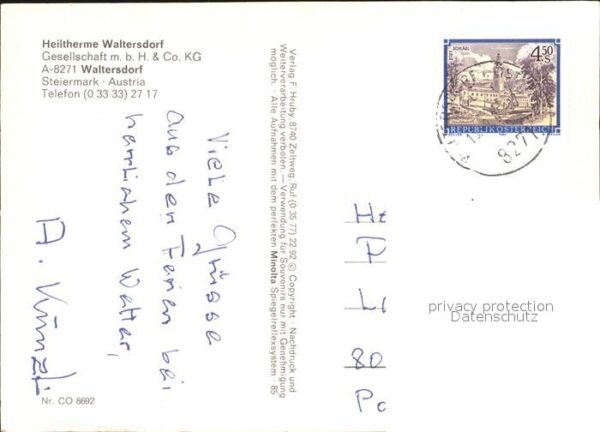 Heiltherme Waltersdorf
Gesellschaft m. b. H. & Co. KG
A-8271 Waltersdorf
Steiermark · Austria
Telefon (0 33 33) 27 17
Viele Grüsse
aus den Ferien bei
herrlichem Wetter,
A. Künzli
Nr. CO 8692
Verlag F. Hruby, 8740 Zeltweg, Ruf (0 35 77) 22 92 © Copyright · Nachdruck und
Weiterverarbeitung verboten. — Verwendung für Souvenirs nur mit Genehmigung
möglich. · Alle Aufnahmen mit dem perfekten Minolta Spiegelreflexsystem · 85
STIFT SCHLÄGL
4.50
S
REPUBLIK ÖSTERREICH
8271
Hr
F
LI
80
Po
privacy protection
Datenschutz